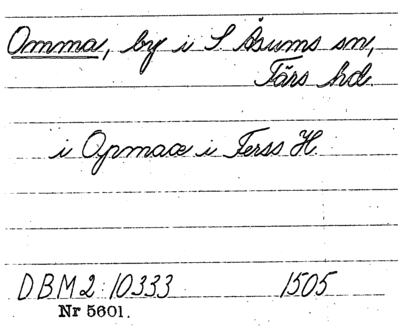 Omma, by i S Åsums sn,
Färs hd.
i Opmaæ i Ferss H
DBM 2:10333 1505
Nr 5601.